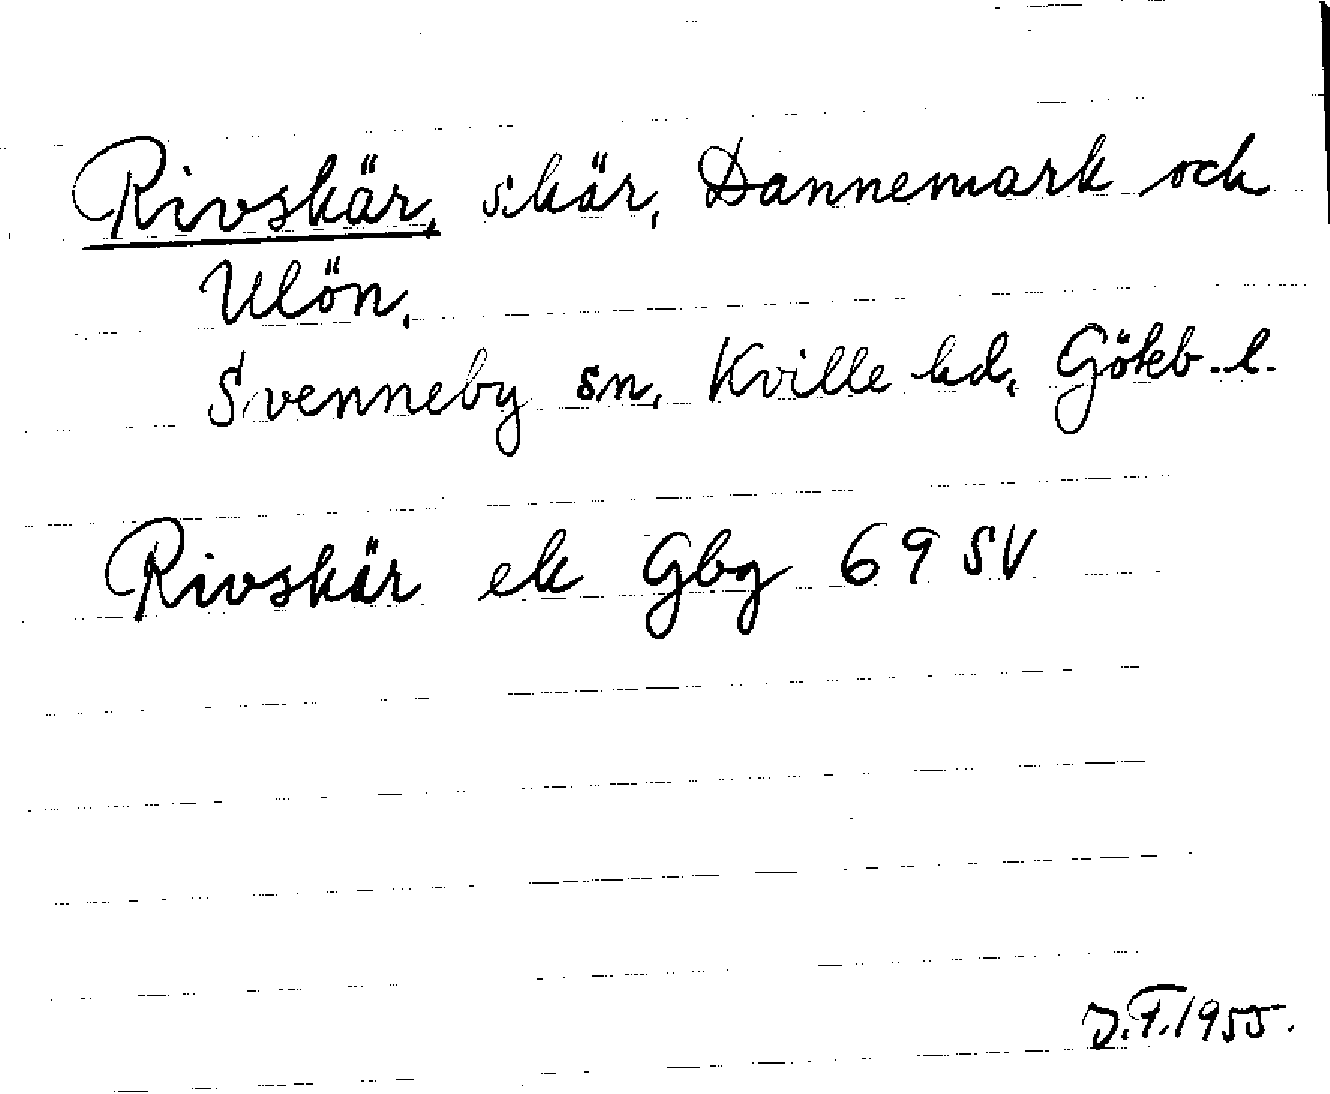 Rivskär, skär, Dannemark och
Ulön.
Svenneby sn. Kville hd. Göteb. l.
Rivskär ek Gbg 69 SV
J.F. 1955.